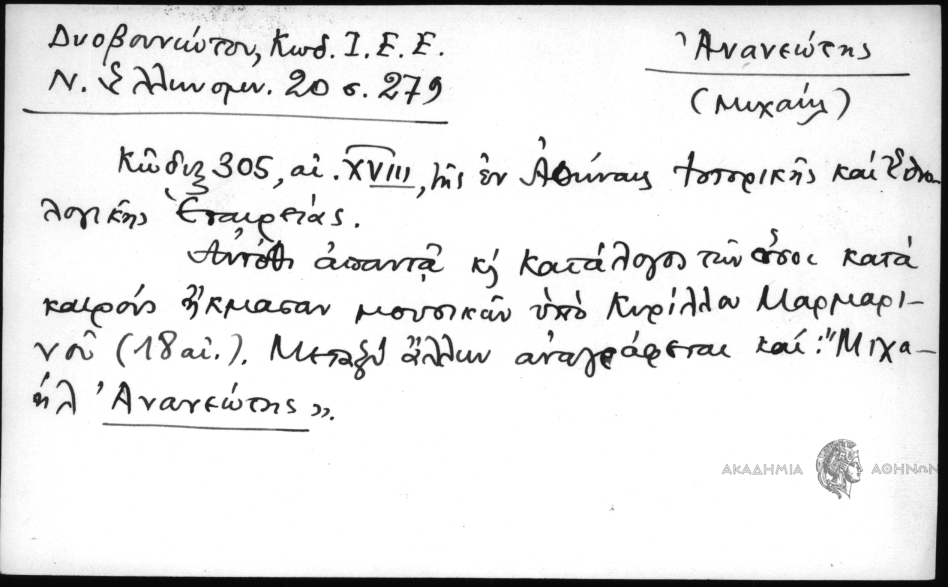 Δυοβουνιώτου, Κωδ. Ι. Ε. Ε.
Ν. Ἑλληνομν. 20 σ. 279
Ἀνανεώτης
(Μιχαήλ)
Κῶδιξ 305, αἰ. XVIII, τῆς ἐν Ἀθήναις Ἱστορικῆς καὶ Ἐθνο-
λογικῆς Ἑταιρείας.
Αὐτόθι ἀπαντᾷ κ κατάλογος τῶν ὅσοι κατὰ
καιροὺς ἤκμασαν μουσικῶν ὑπὸ Κυρίλλου Μαρμαρι-
νοῦ (18 αἰ.). Μεταξὺ ἄλλων ἀναγράφεται καὶ: "Μιχα-
ὴλ Ἀνανεώτης».
ΑΚΑΔΗΜΙΑ ΑΘΗΝΩΝ